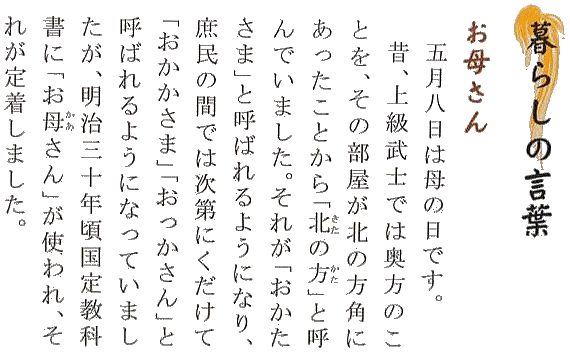 暮らしの言葉
お母さん
五月八日は母の日です。
昔、上級武士では奥方のこ
とを、その部屋が北の方角に
あったことから「北の方」と呼
んでいました。それが「おかた
さま」と呼ばれるようになり、
庶民の間では次第にくだけて
「おかかさま」「おっかさん」と
呼ばれるようになっていまし
たが、明治三十年頃国定教科
書に「お母さん」が使われ、そ
れが定着しました。